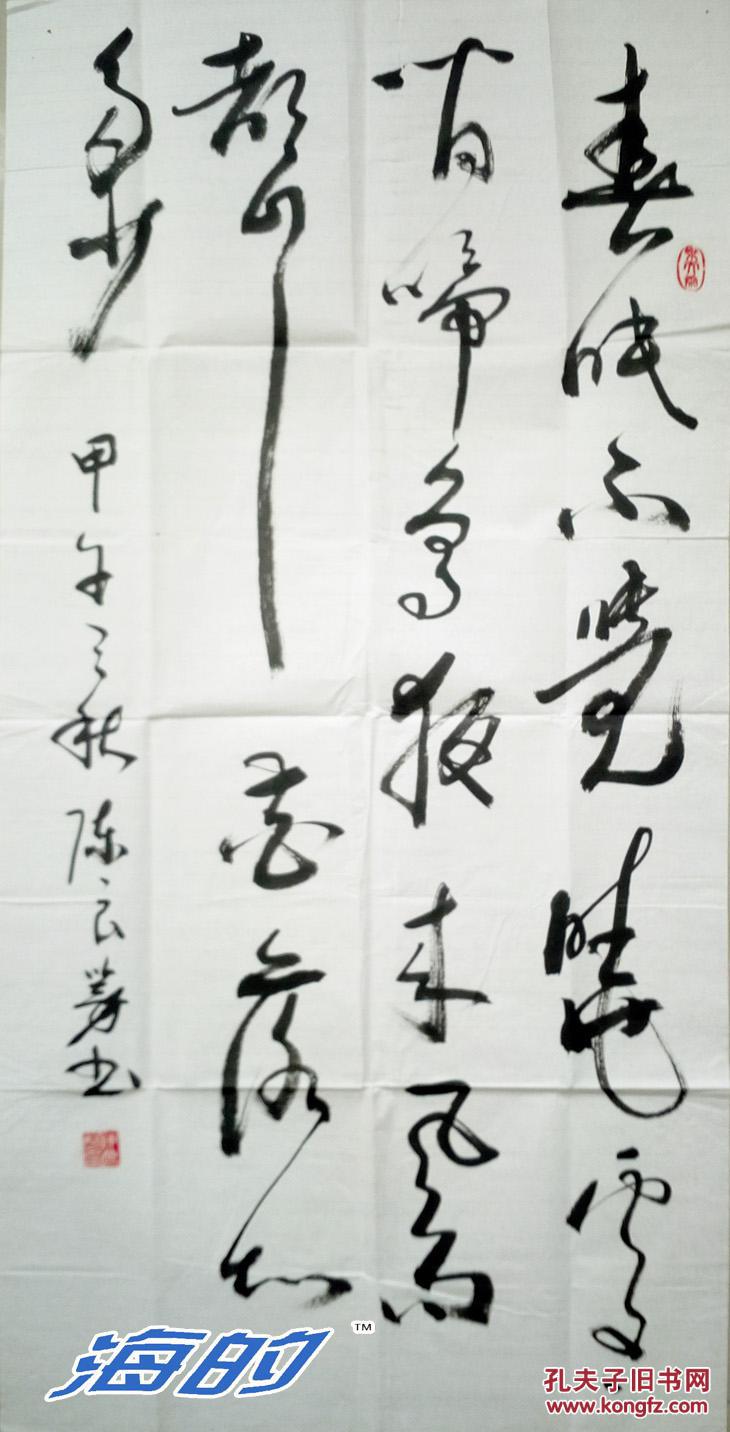 春眠不覺曉處々
聞啼鳥夜来風雨
聲花落知
多少 甲午之秋 陈良书
海的 TM
孔夫子旧书网
www.kongfz.com